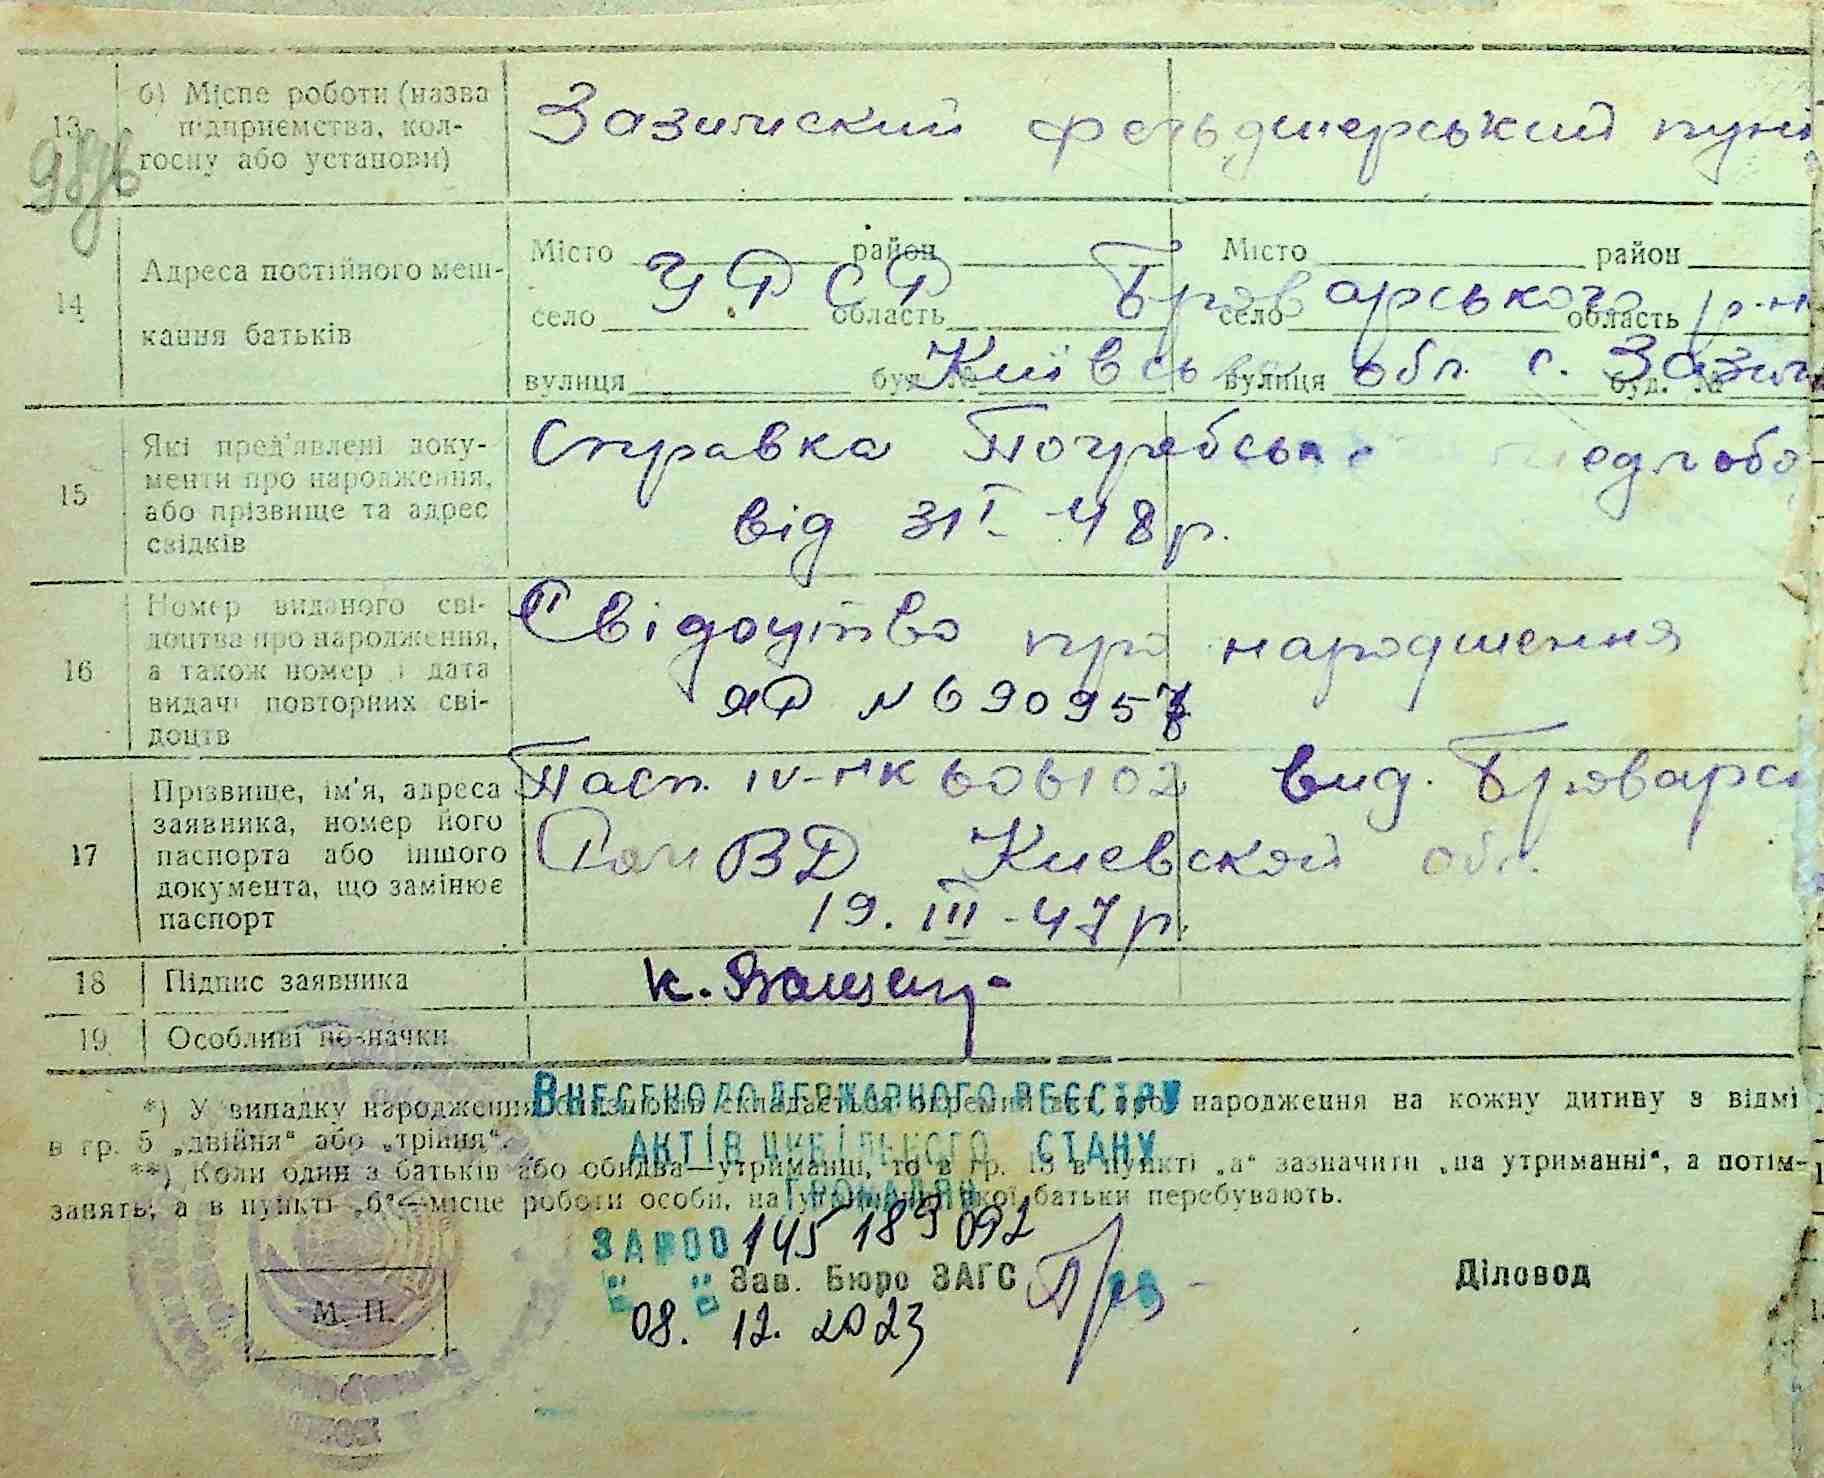 13 б) Місце роботи (назва підприємства, колгоспу або установи) Зазимский фельдшерський пунк
98/6
14 Адреса постійного мешкання батьків
Місто район Місто район
УРСР Броварського р-н
село область село область
Київсь обл. с. Зазим
вулиця буд. № вулиця буд. №
15 Які пред'явлені документи про народження, або прізвище та адрес свідків
Справка Погребсь
від 31 I - 48 р.
16 Номер виданого свідоцтва про народження, а також номер і дата видачі повторних свідоцтв
Свідоцтво про народшення
ЯР № 690957
17 Прізвище, ім'я, адреса заявника, номер його паспорта або іншого документа, що замінює паспорт
Пасп. IV-НК 606102 вид. Броварс
РайВД Киевской обл.
19. III - 47 р.
18 Підпис заявника
19 Особливі позначки
*) У випадку народження близнюків складається окремий акт про народження на кожну дитину з відмі
в гр. 5 „двійня“ або „трійня“.
**) Коли один з батьків або обидва—утриманці, то в гр. 13 в пункті „а“ зазначити „на утриманні“, а потім
занять, а в пункті „б“—місце роботи особи, на утриманні якої батьки перебувають.
ВНЕСЕНО ДО ДЕРЖАВНОГО РЕЄСТРУ
АКТІВ ЦИВІЛЬНОГО СТАНУ
ГРОМАДЯН
ЗА №00 145 189 092
Зав. Бюро ЗАГС Діловод
08. 12. 2023
М. П.